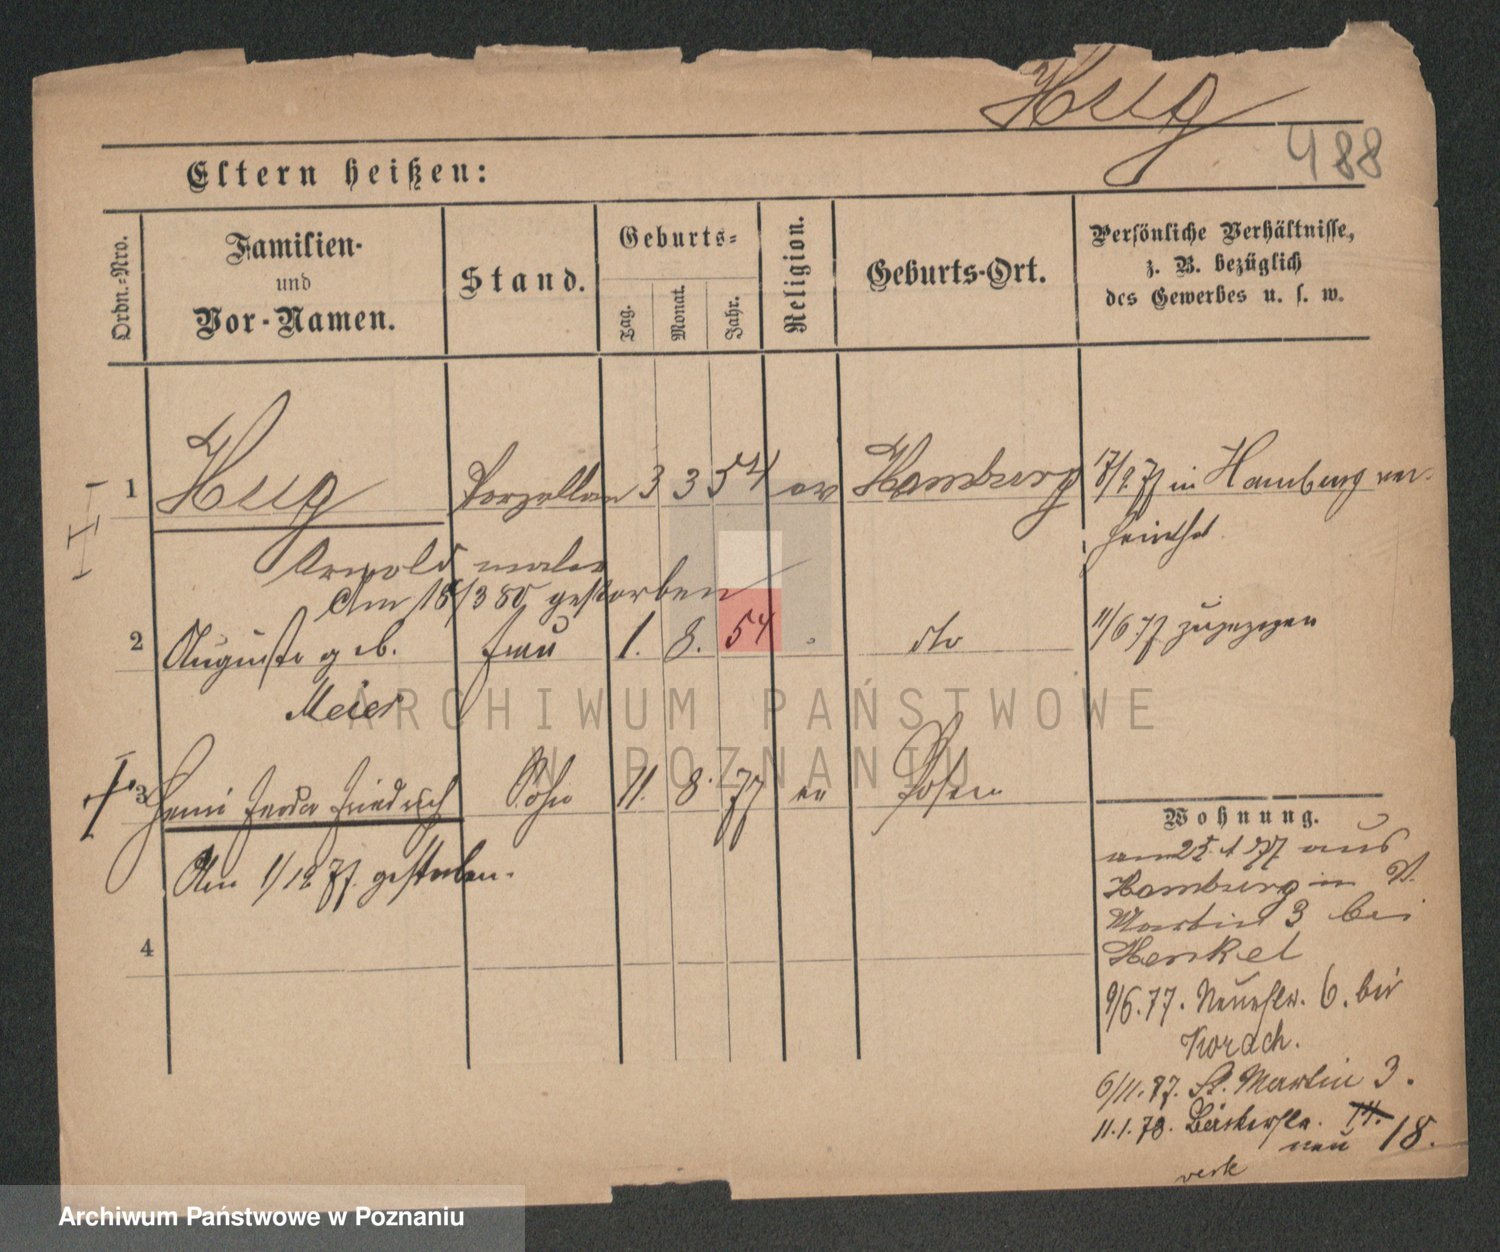 Hug
488
Eltern heißen:
Ordn.-Nro.
Familien-
und
Vor-Namen.
Stand.
Geburts-
Tag.
Monat.
Jahr.
Religion.
Geburts-Ort.
Persönliche Verhältnisse,
z. B. bezüglich
des Gewerbes u. s. w.
1 Hug Porzellan 3 3 54 ev Hamburg in Hamburg ver-
Arnold maler
Am 18/3 80 gestorben
2 Auguste geb. Frau 1. 8. 54 dto 11/6 77 zugezogen
Meier
ARCHIWUM PAŃSTWOWE
W POZNANIU
3 Friedrich Sohn 11. 8. 77 ev Posen
Am 1/12 77. gestorben.
4
Wohnung.
am 25.1 77 aus
Hamburg in St.
Martin 3 bei
Henkel
9/6.77. Neuestr. 6. bei
Korach.
6/11.77. St. Martin 3.
11.1.78. Bäckerstr. 14.
neu 18.
Archiwum Państwowe w Poznaniu